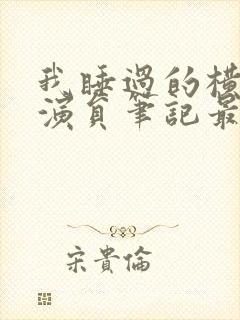 我睡過的橫
演員筆記最
宋貴倫